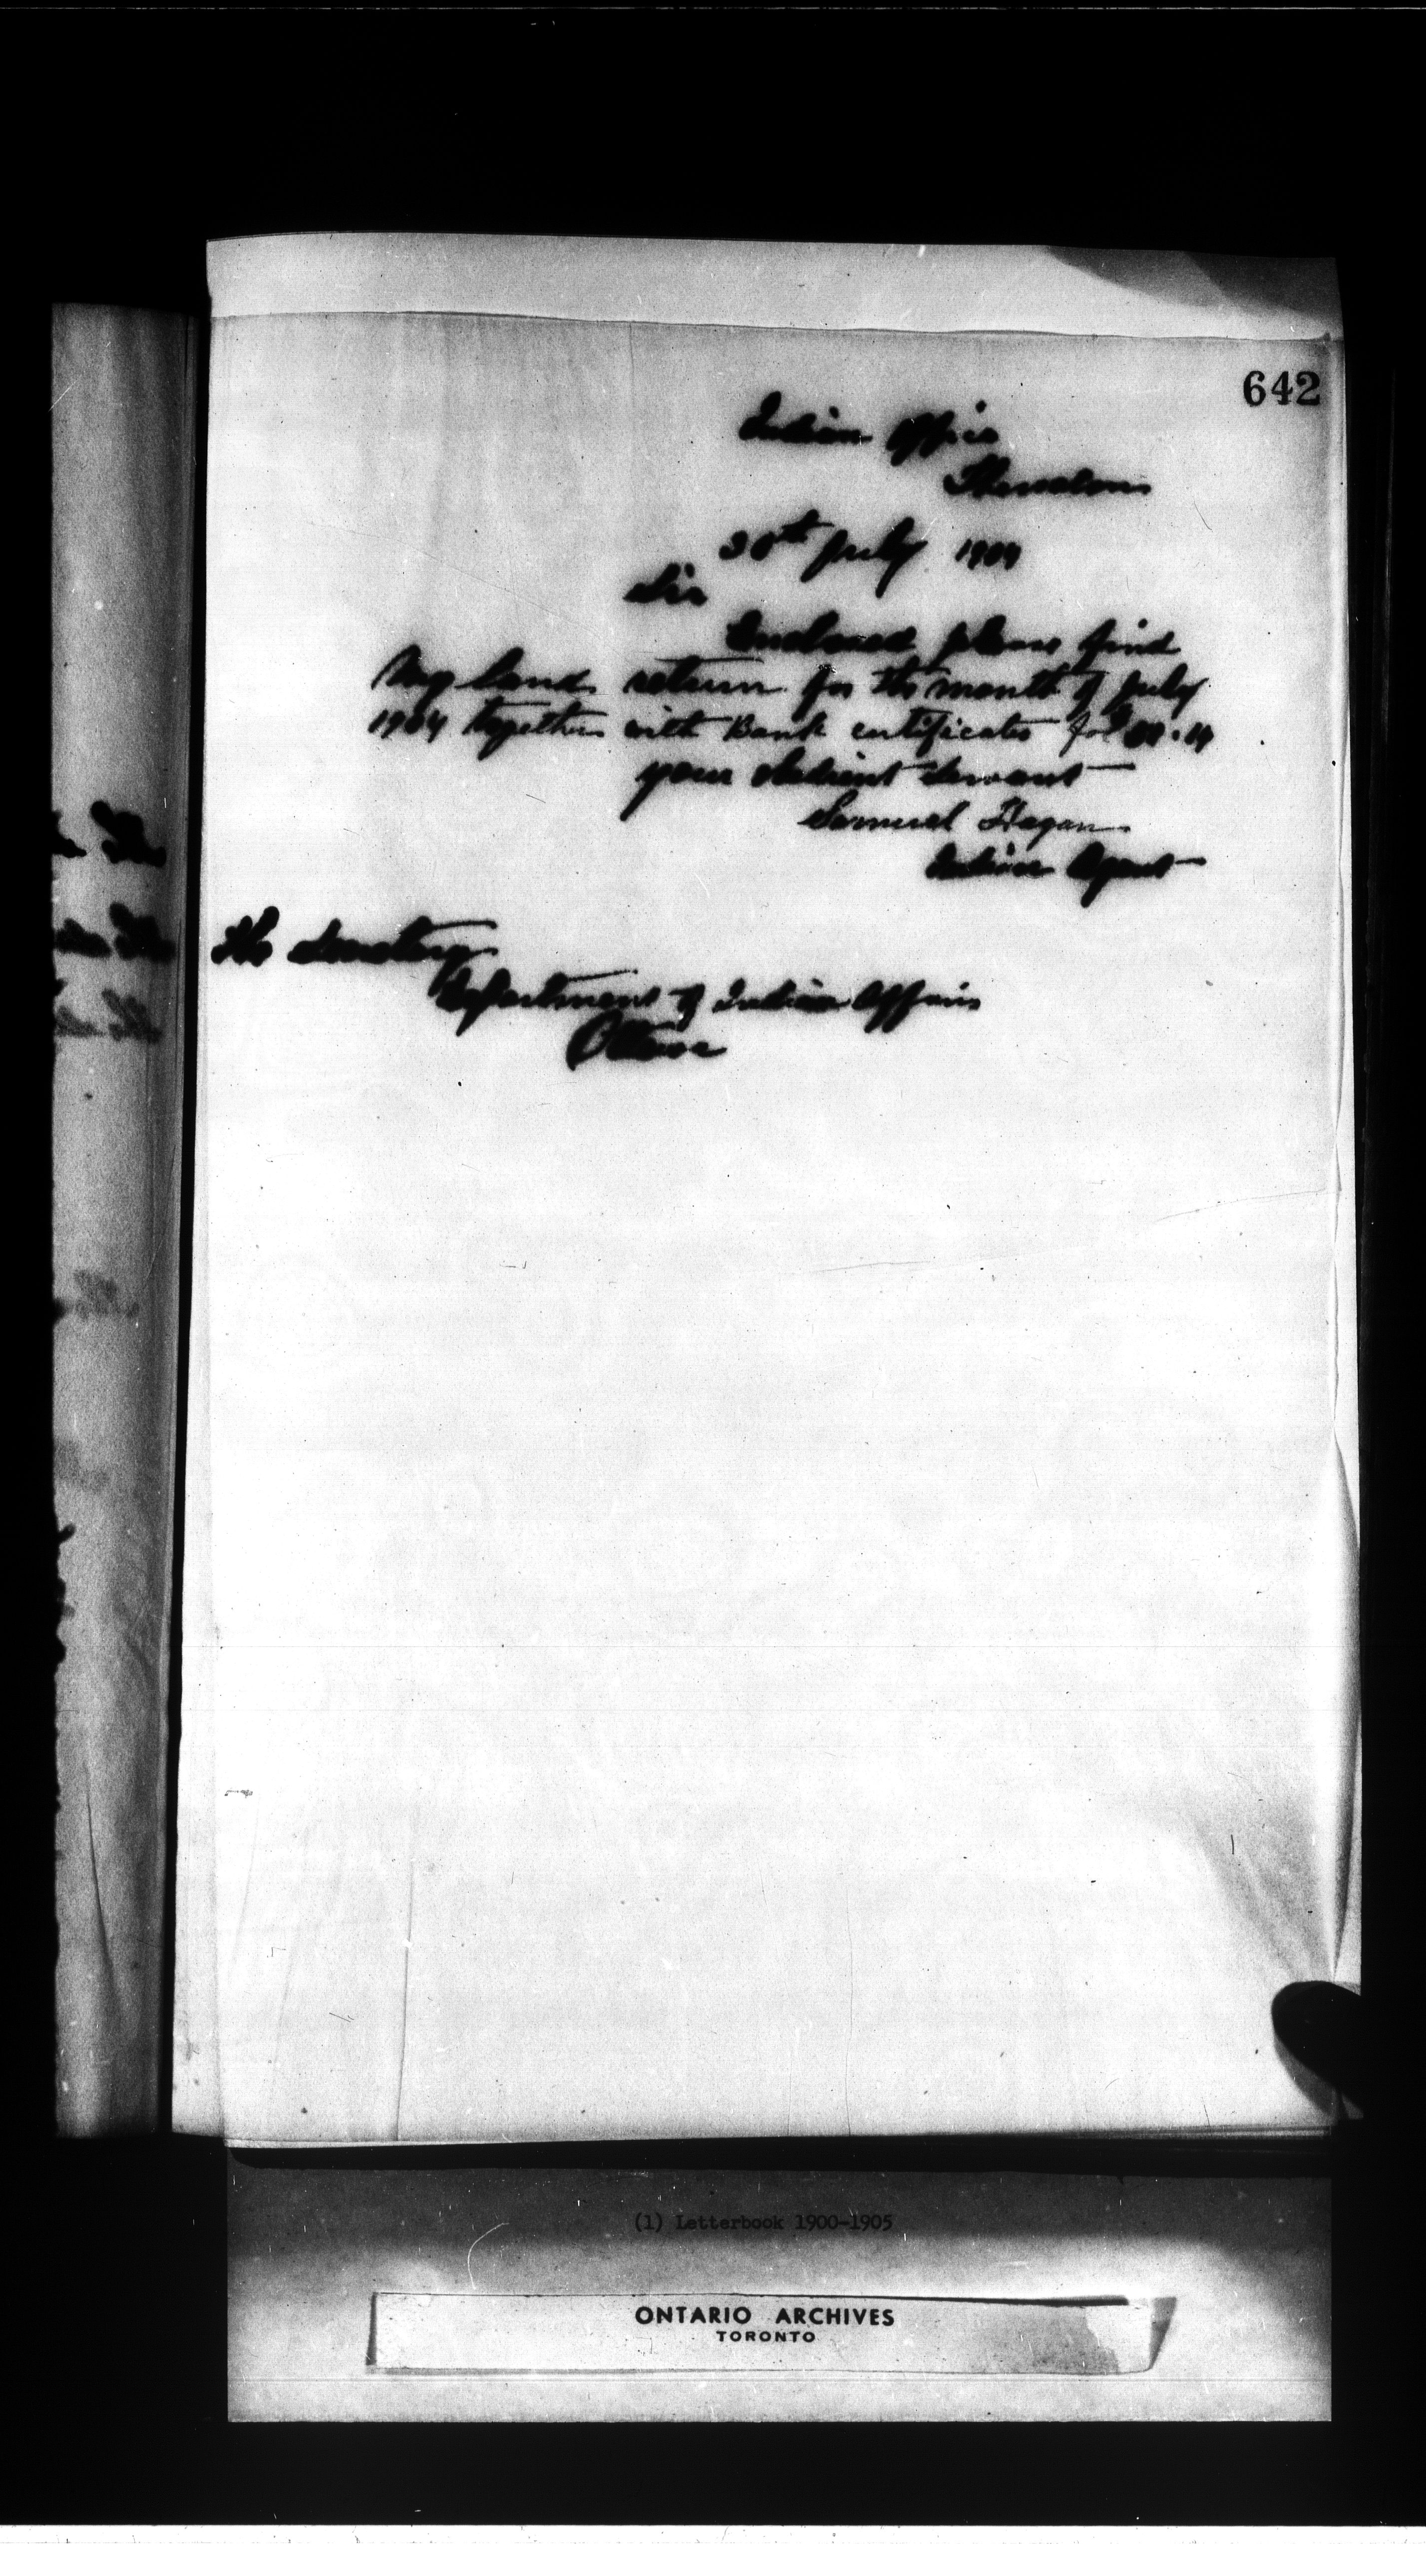 642
Indian Office
Thessalon
30th July 1904
Sir
Enclosed please find
My land return for the month of July
1904 together with Bank certificates for
your obedient servant
Samuel Hagan
Indian Agent
The Secretary
Department of Indian Affairs
Ottawa
(1) Letterbook 1900-1905
ONTARIO ARCHIVES
TORONTO